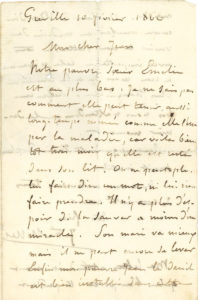 février 1866
Mon cher Jean
Notre pauvre Sœur Emelie
est au plus bas; je ne sais pas
comment elle peut tenir aussi
longtemps comme elle l'est
par la maladie, car voila bien
tot trois mois qu'elle est
dans son lit. On ne peut plus
lui faire dire un mot, ni lui rien
faire prendre. Il n'y a plus d'es
poir de la sauver a moins d'un
miracle. Son mari va mieux
mais il ne peut encore se lever